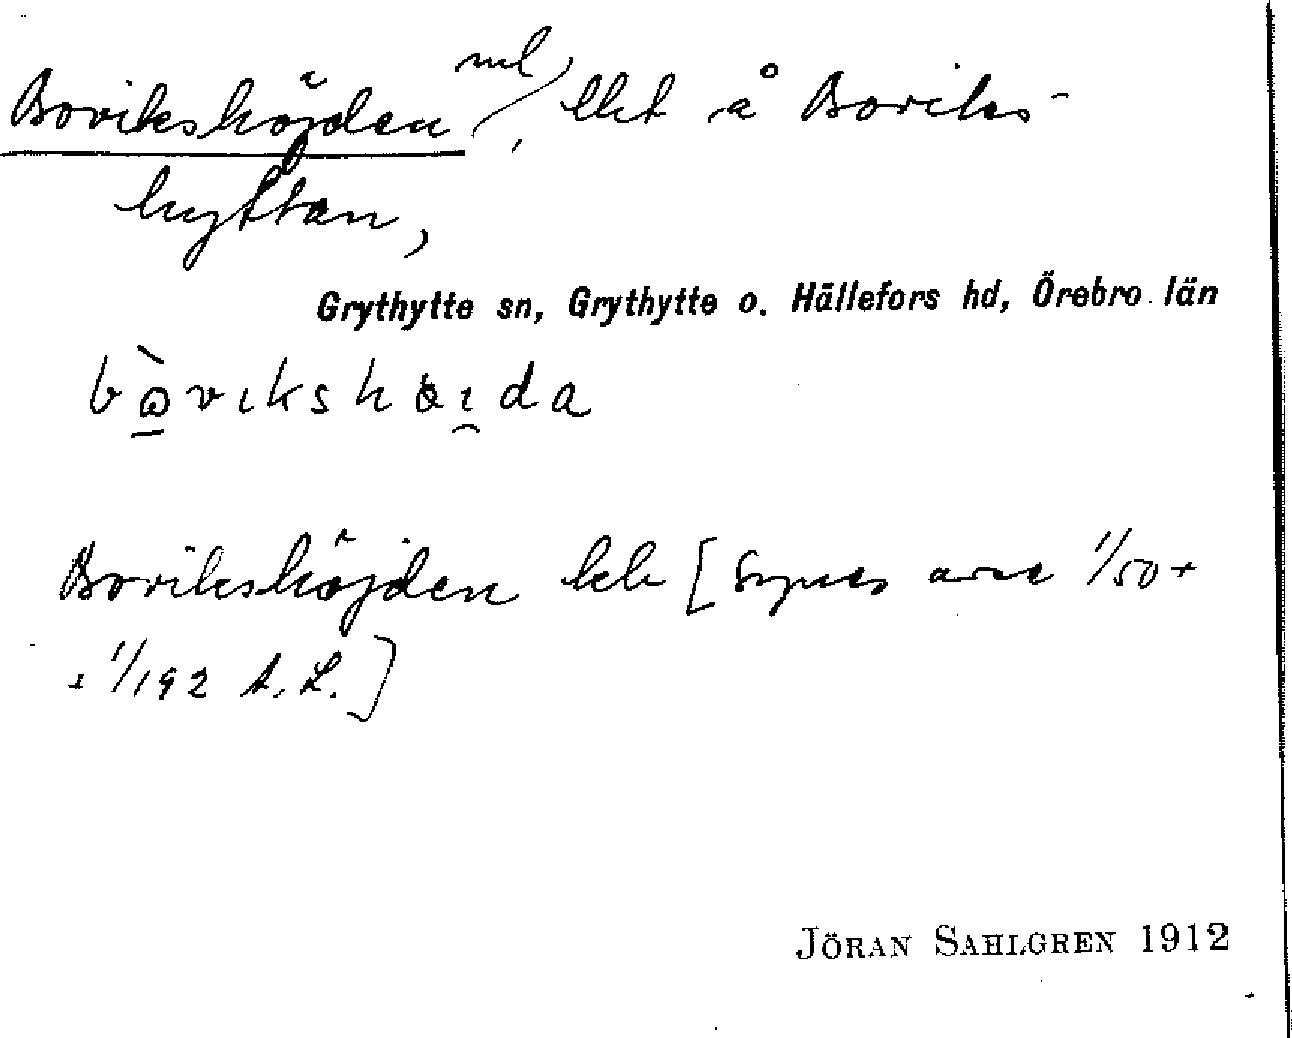 Bovikshöjden ml, lht å Boviks-
hyttan,
Grythytte sn, Grythytte o. Hällefors hd, Örebro län
bò̱vɩkshöɩ̯da
Bovikshöjden [Synes avse 1/50 +
+ 1/192 A. L.]
JÖRAN SAHLGREN 1912